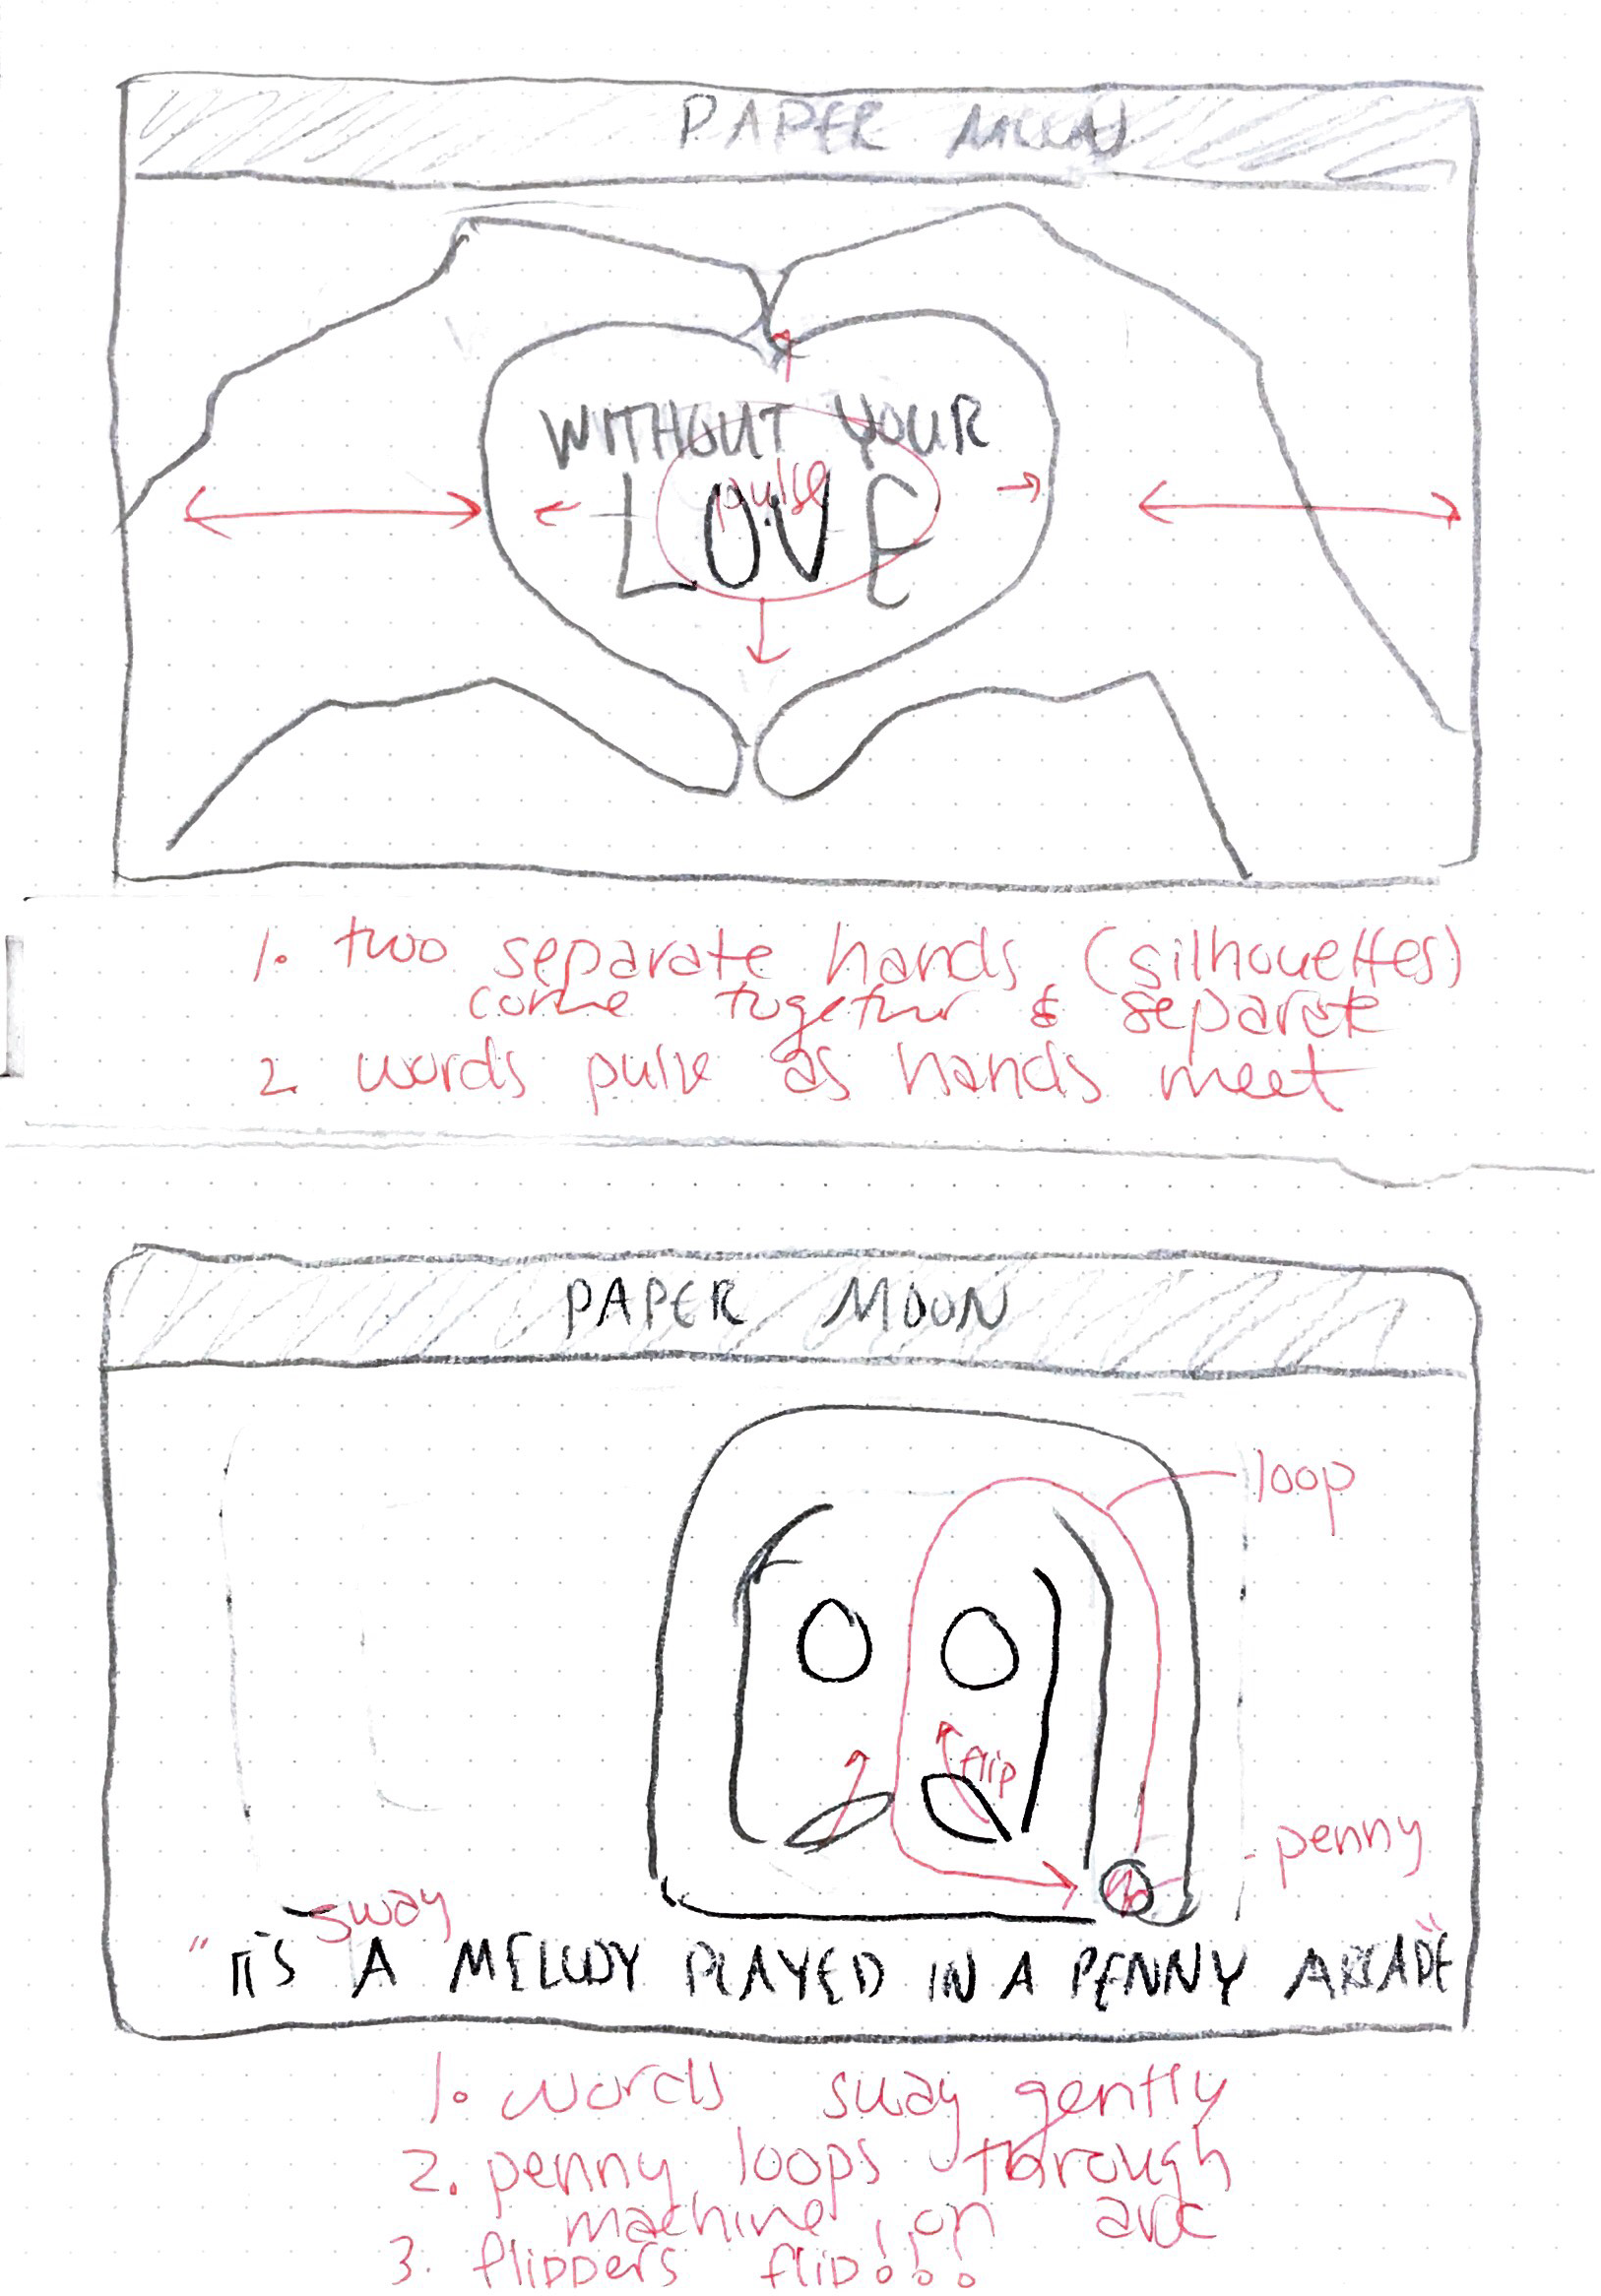 PAPER MOON
WITHOUT YOUR
pulse
LOVE
1. two separate hands (silhouettes)
come together & separate
2. words pulse as hands meet
PAPER MOON
loop
flip
penny
sway
"IT'S A MELODY PLAYED IN A PENNY ARCADE"
1. words sway gently
2. penny loops through
machine on arc
3. flippers flip!!!